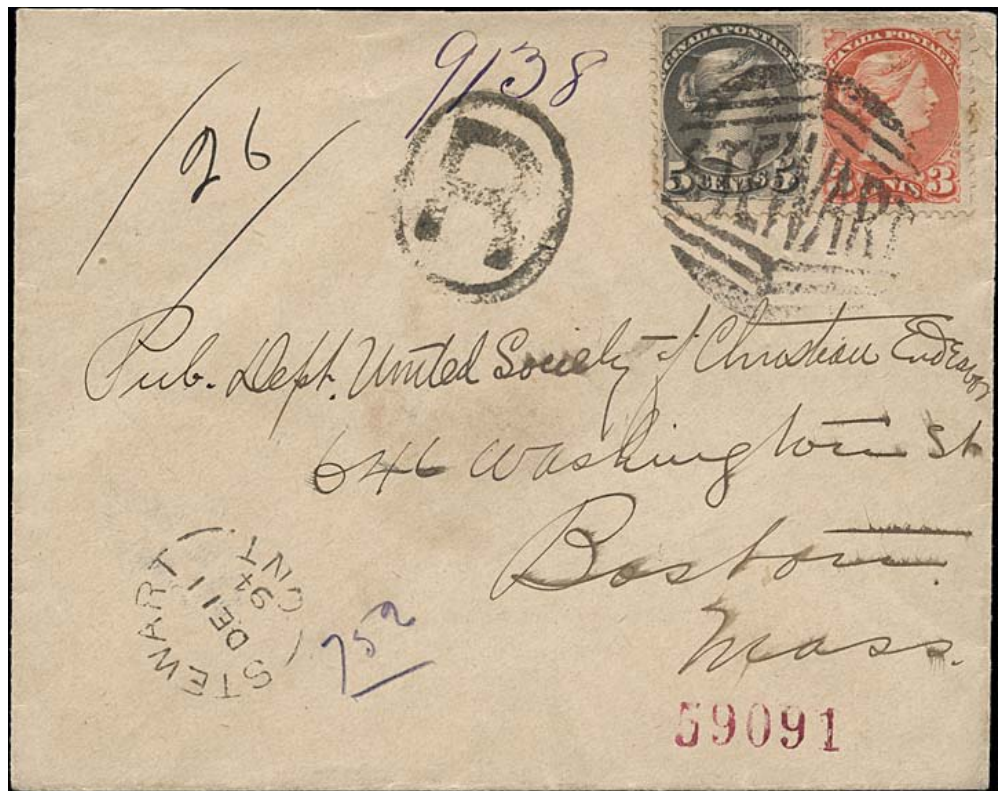 9138
26
R
CANADA POSTAGE
5 CENTS 5
CANADA POSTAGE
3 CENTS 3
STEWART
STEWART
Pub. Dept. United Society of Christian Endeavor
646 Washington St
Boston
Mass.
STEWART
DE 11
94
ONT
752
59091